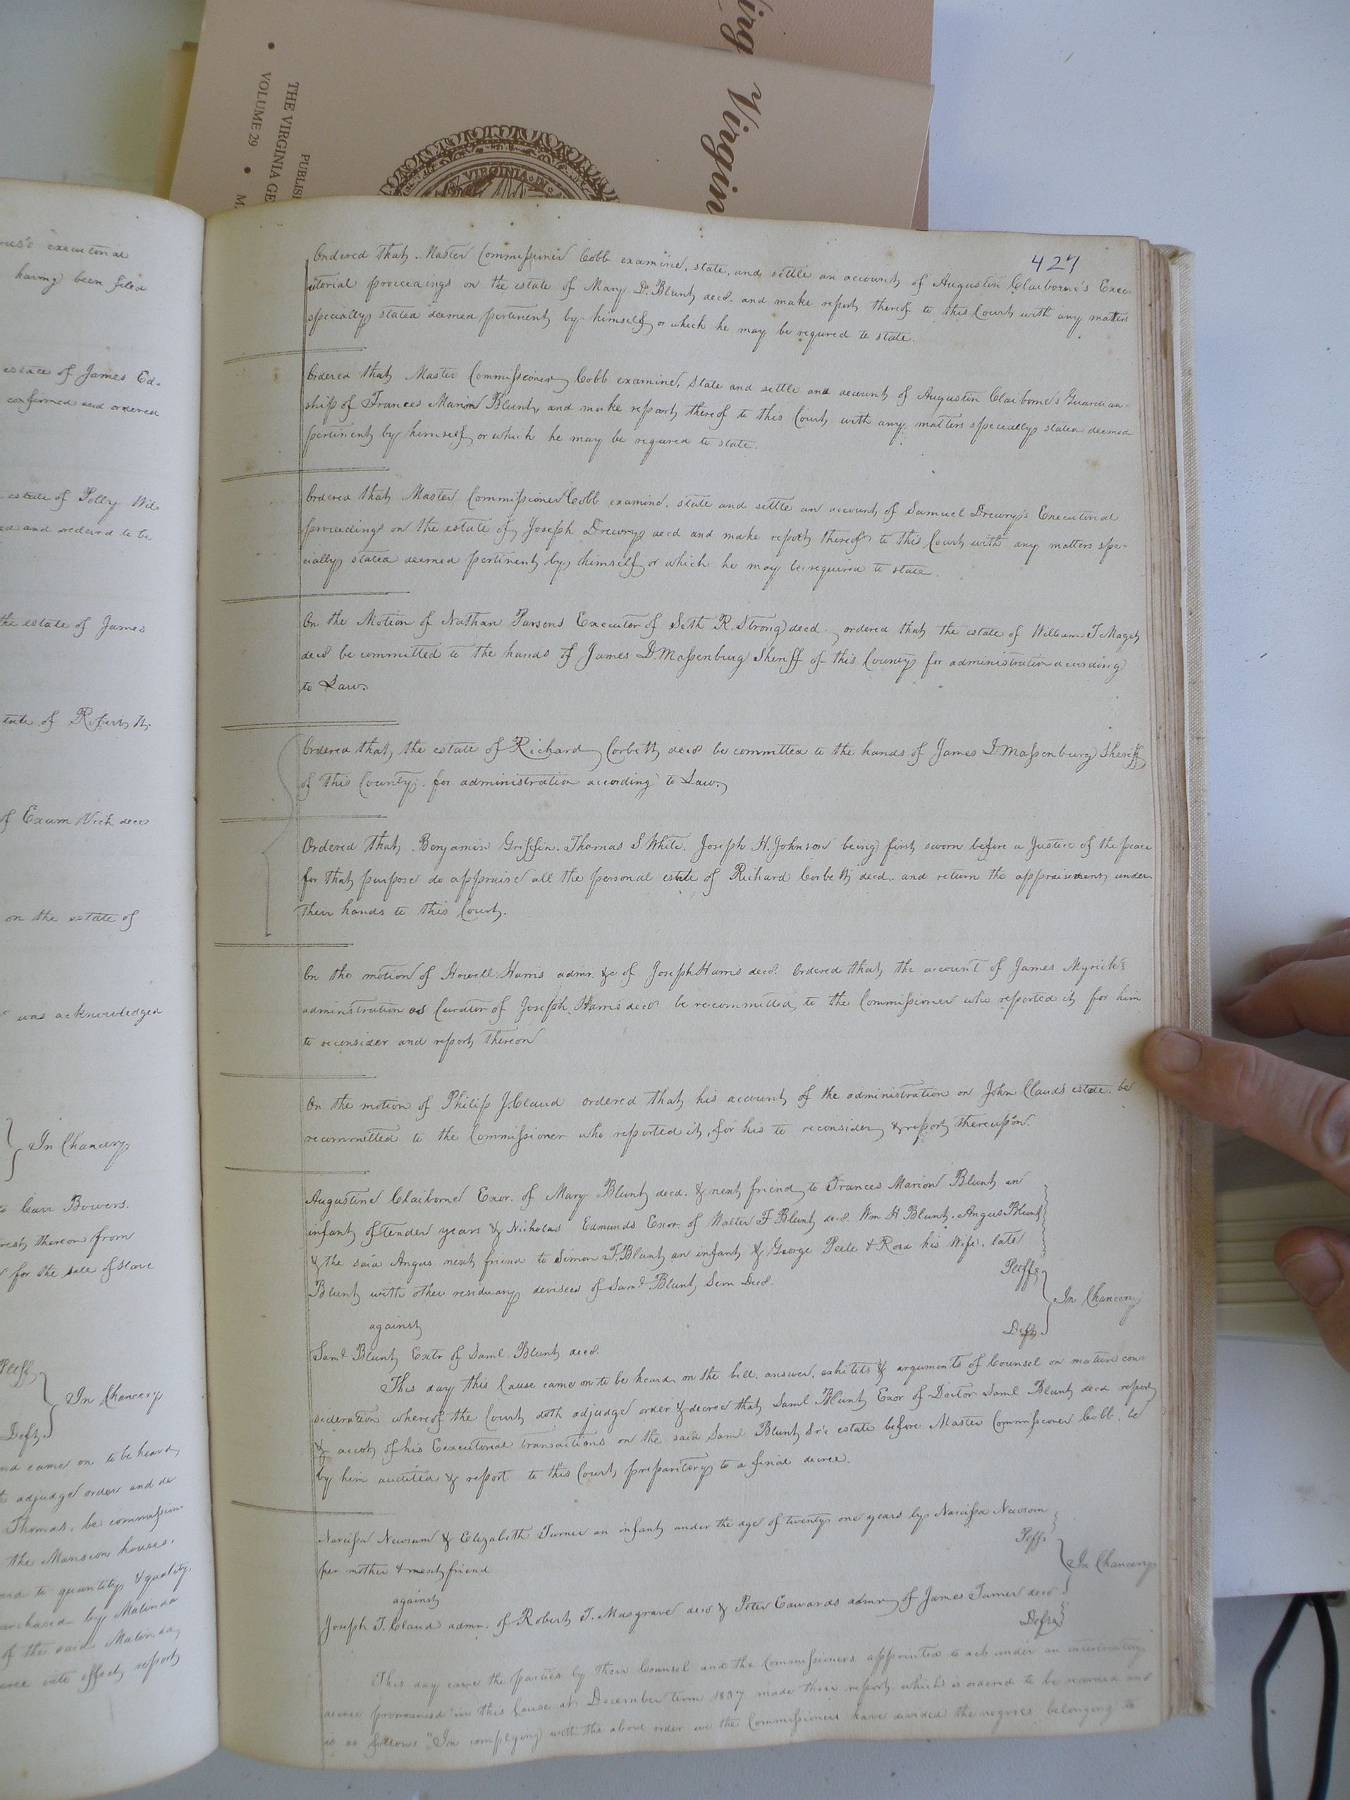 Virginia
Virgin
PUBLIS
THE VIRGINIA GE
VOLUME 29 • M
VIRGINIA
427
executorial
having been filed
estate of James Ed-
confirmed and ordered
estate of Polly Wil-
and ordered to be
the estate of James
of Exum Vick decd
on the estate of
was acknowledged
In Chancery
to Carr Bowers.
thereon from
for the sale of slave
Plffs
In Chancery
Defts
and came on to be heard
adjudge order and de
Thomas, be commission
the Mansion house,
to quantity & quality,
purchased by Malinda
of the said Malinda,
into effect, report
Ordered that Master Commissioner Cobb examine, state, and settle an account of Augustin Claiborne's Exec-
utorial proceedings on the estate of Mary D. Blunt decd. and make report thereof to this Court with any matters
specially stated deemed pertinent by himself, or which he may be required to state.
Ordered that Master Commissioner Cobb examine, state and settle and account of Augustin Claiborne's Guardian-
ship of Frances Marion Blunt, and make report thereof to this Court with any matters specially stated deemed
pertinent by himself, or which he may be required to state.
Ordered that Master Commissioner Cobb examine, state and settle an account of Samuel Drewry's Executorial
proceedings on the estate of Joseph Drewry decd and make report thereof to this Court with any matters spe-
cially stated deemed pertinent by himself or which he may be required to state.
On the Motion of Nathan Parsons Executor of Seth R. Strong decd. ordered that the estate of William T. Maget
decd be committed to the hands of James D. Massenburg Sheriff of this County for administration according
to Law.
Ordered that the estate of Richard Corbett decd be committed to the hands of James D Massenburg Sheriff
of this County for administration according to Law.
Ordered that Benjamin Griffin, Thomas S White, Joseph H. Johnson being first sworn before a Justice of the peace
for that purpose do appraise all the personal estate of Richard Corbett decd. and return the appraisement under
their hands to this Court.
On the motion of Howell Harris admr. &c of Joseph Harris decd. Ordered that the account of James Myrick's
administration as Curator of Joseph Harris decd be recommitted to the Commissioner who reported it, for him
to reconsider and report thereon
On the motion of Philip J. Claud ordered that his account of the administration on John Clauds estate be
recommitted to the Commissioner who reported it, for his to reconsider & report thereupon.
Augustine Claiborne Exor. of Mary Blunt decd. & next friend to Frances Marion Blunt an
infant of tender years & Nicholas Edmunds Exor. of Walter F Blunt decd. Wm H Blunt, Angus Blunt
& the said Angus next friend to Simon F. Blunt an infant & George Peete & Rosa his Wife, late
Blunt with other residuary devisees of Saml Blunt Senr Decd.
Plffs
In Chancery
against
Defts
Saml Blunt Exor of Saml Blunt decd.
This day this Cause came on to be heard on the bill, answer, exhibits & arguments of Counsel on mature con-
sideration whereof the Court doth adjudge order & decree that Saml Blunt Exor of Doctor Saml Blunt decd report
& acct. of his Executorial transactions on the said Saml Blunt Sr's estate before Master Commissioner Cobb, be
by him audited & report to this Court, preparitory to a final decree.
Narcissa Newsum & Elizabeth Turner an infant under the age of twenty one years by Narcissa Newsom
her mother & next friend
Plffs
In Chancery
against
Joseph T. Claud admr. of Robert T. Musgrave decd & Peter Edwards admr. of James Turner decd
Defts
This day came the parties by their Counsel and the Commissioners appointed to act under an interlocutory
decree pronounced in this Cause at December term 1837 made their report, which is ordered to be recorded and
is as follows "In complying with the above order we the Commissioners have divided the negroes belonging to